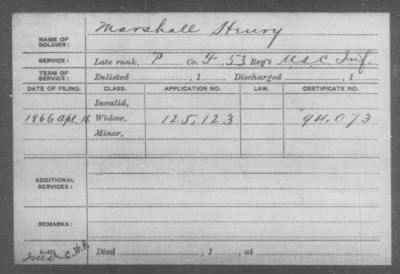 Marshall Henry
NAME OF SOLDIER:
SERVICE: Late rank, P Co. F, 53 Reg't U.S.C. Inf.
TERM OF SERVICE: Enlisted , 1 Discharged , 1
DATE OF FILING. CLASS. APPLICATION NO. LAW. CERTIFICATE NO.
Invalid,
1866 Apl. 16 Widow, 125,123 94.073
Minor,
ADDITIONAL SERVICES:
REMARKS:
C.W.
Died , 1 , at